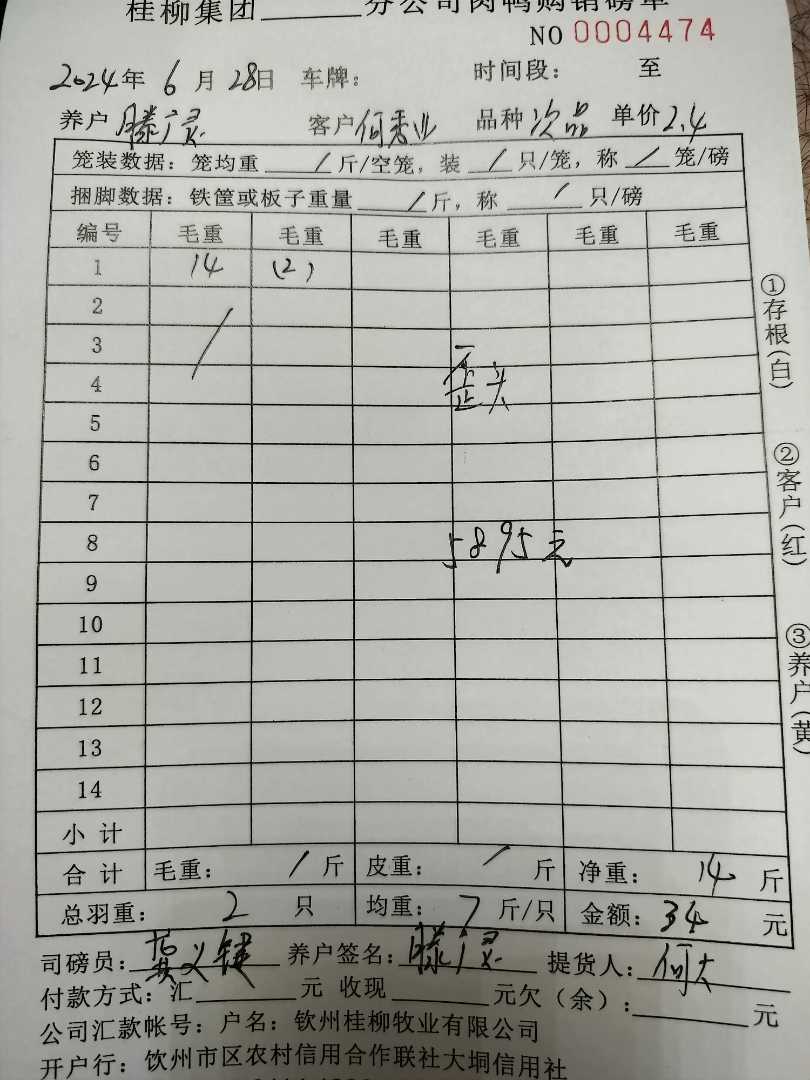 桂柳集团______分公司肉鸭购销磅单
NO 0004474
2024年 6月 28日 车牌: 时间段: 至
养户 滕广灵 客户 何秀业 品种 次品 单价 2.4
笼装数据: 笼均重 / 斤/空笼, 装 / 只/笼, 称 / 笼/磅
捆脚数据: 铁筐或板子重量 / 斤, 称 / 只/磅
编号 毛重 毛重 毛重 毛重 毛重 毛重
1 14 (2)
2
3 /
4 歪头
5
6
7
8 5895元
9
10
11
12
13
14
小计
合计 毛重: / 斤 皮重: / 斤 净重: 14 斤
总羽重: 2 只 均重: 7 斤/只 金额: 34 元
司磅员: 黄义键 养户签名: 滕广灵 提货人: 何大
付款方式: 汇______元 收现______元欠(余):______元
公司汇款帐号: 户名: 钦州桂柳牧业有限公司
开户行: 钦州市区农村信用合作联社大垌信用社
①存根(白)
②客户(红)
③养户(黄